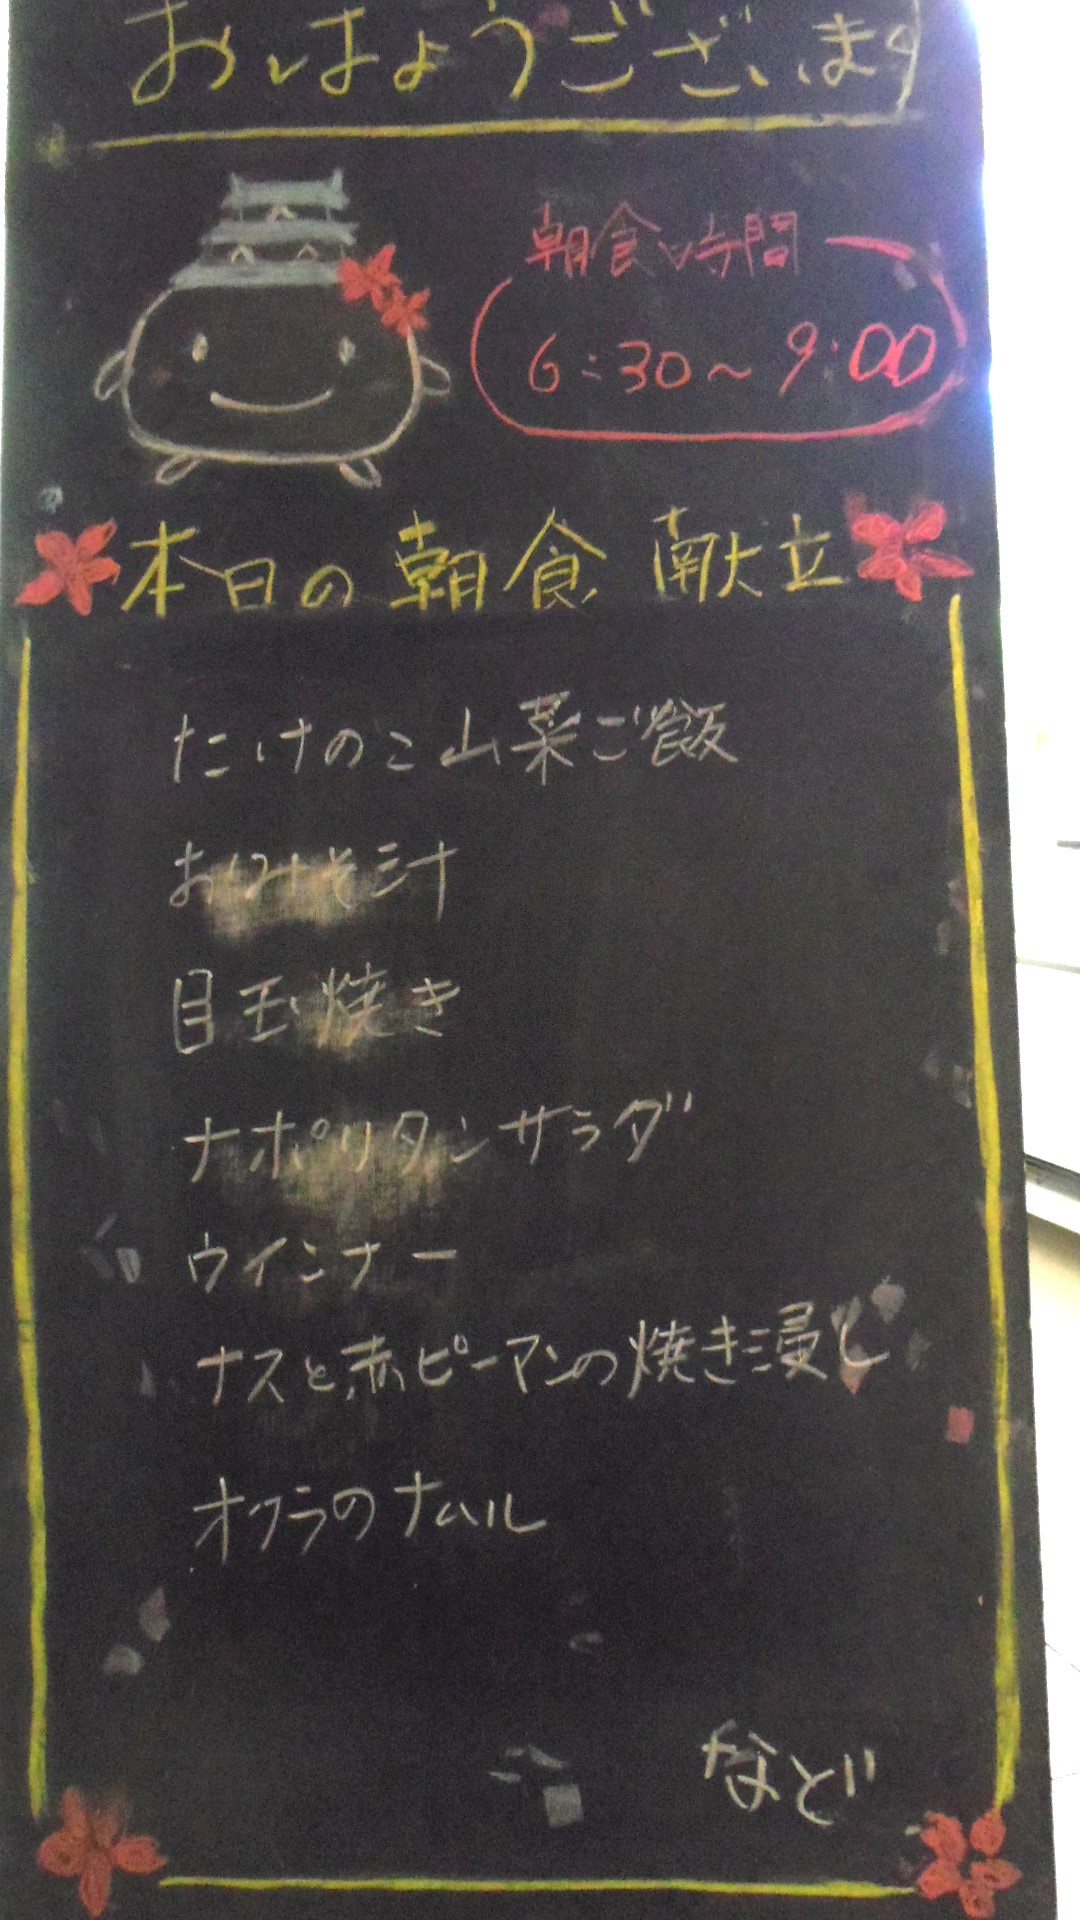 おはようございます
朝食時間
6:30～9:00
本日の朝食 献立
たけのこ山菜ご飯
おみそ汁
目玉焼き
ナポリタンサラダ
ウインナー
ナスと赤ピーマンの焼き浸し
オクラのナムル
など